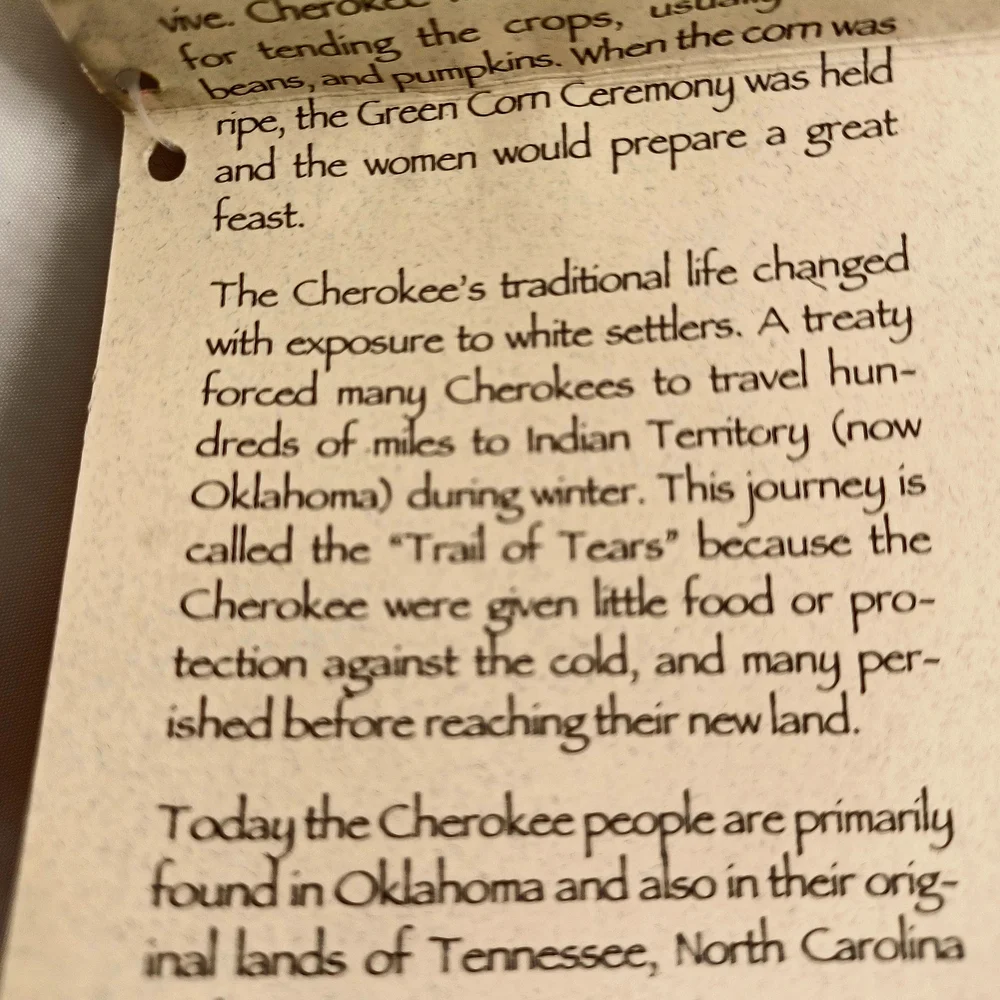 vive. Cherokee
for tending the crops, usually
beans, and pumpkins. When the corn was
ripe, the Green Corn Ceremony was held
and the women would prepare a great
feast.
The Cherokee's traditional life changed
with exposure to white settlers. A treaty
forced many Cherokees to travel hun-
dreds of miles to Indian Territory (now
Oklahoma) during winter. This journey is
called the "Trail of Tears" because the
Cherokee were given little food or pro-
tection against the cold, and many per-
ished before reaching their new land.
Today the Cherokee people are primarily
found in Oklahoma and also in their orig-
inal lands of Tennessee, North Carolina